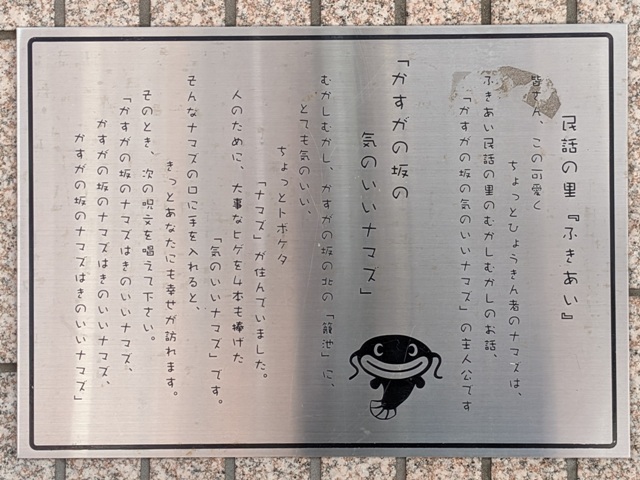 民話の里『ふきあい』
皆さん、この可愛く
ちょっとひょうきん者のナマズは、
ふきあい民話の里のむかしむかしのお話、
「かすがの坂の気のいいナマズ」の主人公です
「かすがの坂の
気のいいナマズ」
むかしむかし、かすがの坂の北の「籠池」に、
とても気のいい、
ちょっとトボケタ
「ナマズ」が住んでいました。
人のために、大事なヒゲを4本も捧げた
「気のいいナマズ」です。
そんなナマズの口に手を入れると、
きっとあなたにも幸せが訪れます。
そのとき、次の呪文を唱えて下さい。
「かすがの坂のナマズはきのいいナマズ、
かすがの坂のナマズはきのいいナマズ、
かすがの坂のナマズはきのいいナマズ」